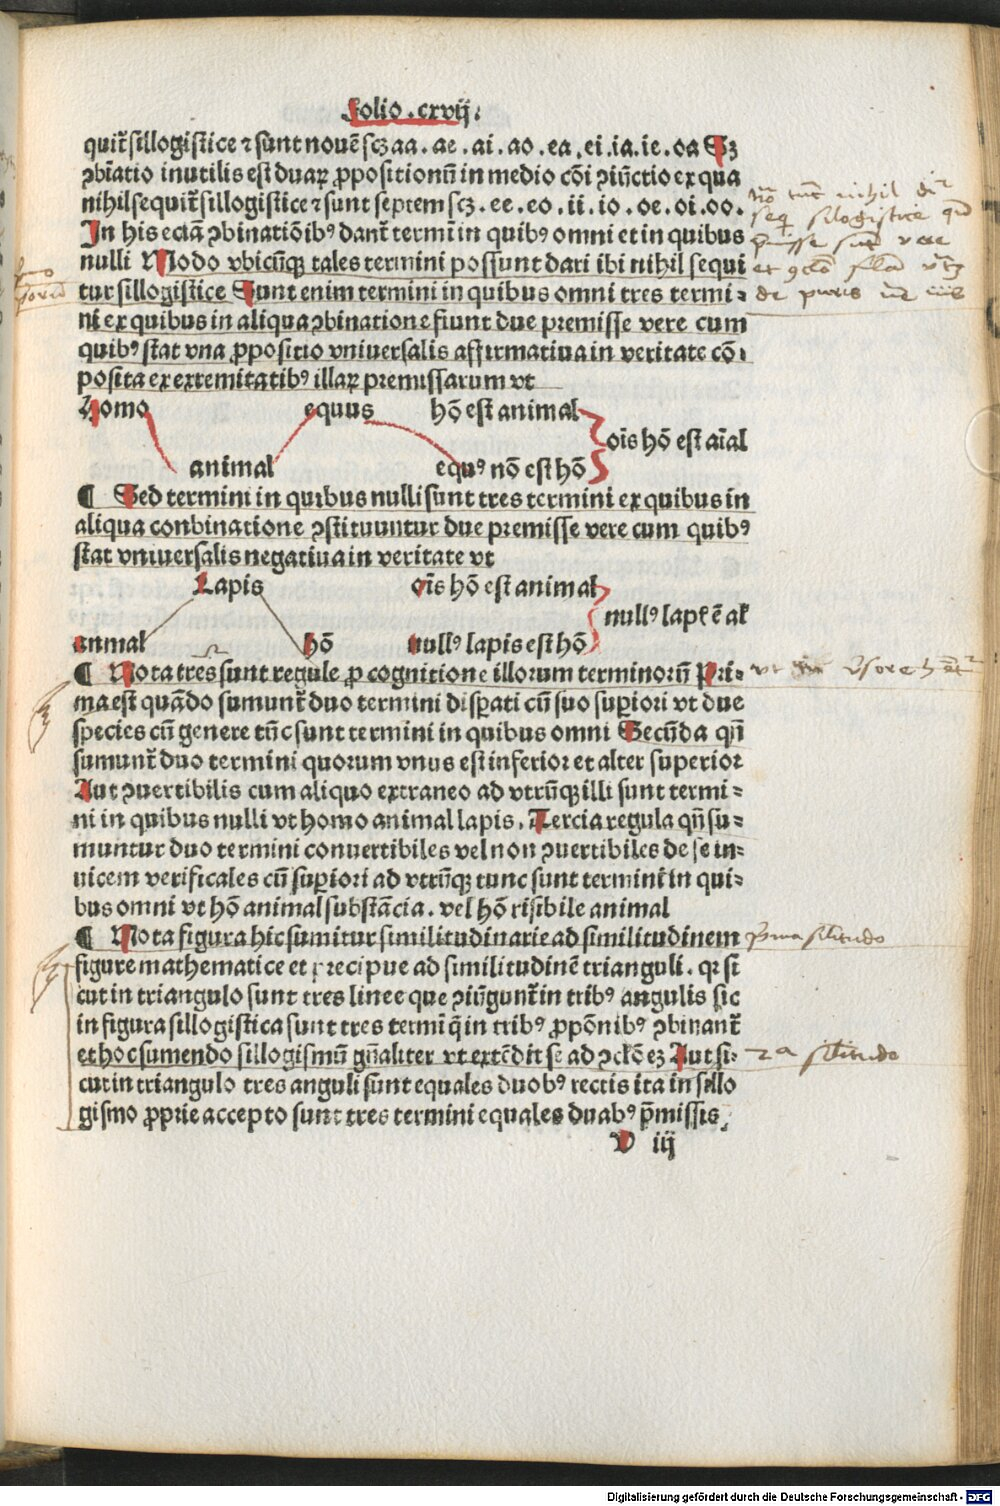 Folio .cxvij.
quit᷑ sillogistice ⁊ sunt nouē scꝫ aa. ae. ai. ao. ea. ei. ia. ie. oa Sꝫ
ꝯbīatio inutilis est duaꝝ ꝓpositionū in medio cōi ꝯiūctio ex qua
nihil sequit᷑ sillogistice ⁊ sunt septem scꝫ. ee. eo. ii. io. oe. oi. oo.
In his eciā ꝯbinatiōibꝰ dant᷑ termi in quibꝰ omni et in quibus
nulli Modo vbicūqꝫ tales termini possunt dari ibi nihil sequi
tur sillogistice Sunt enim termini in quibus omni tres termi⸗
ni ex quibus in aliqua ꝯbinatione fiunt due premisse vere cum
quibꝰ stat vna ꝓpositio vniuersalis affirmatiua in veritate cō⸗
posita ex extremitatibꝰ illaꝝ premissarum vt
Homo equus hō est animal
oīs hō est aīal
animal equꝰ nō est hō
¶ Sed termini in quibus nulli sunt tres termini ex quibus in
aliqua conbinatione ꝯstituuntur due premisse vere cum quibꝰ
stat vniuersalis negatiua in veritate vt
Lapis oīs hō est animal
nullꝰ lap̄ ē al
animal hō nullꝰ lapis est hō
¶ Nota tres sunt regule ꝓ cognitione illorum terminorū Pri⸗
ma est quādo sumunt᷑ duo termini disꝑati cū suo suꝑiori vt due
species cū genere tūc sunt termini in quibus omni Secūda qn̄
sumunt᷑ duo termini quorum vnus est inferior et alter superior
Aut ꝯuertibilis cum aliquo extraneo ad vtrūqꝫ illi sunt termi⸗
ni in quibus nulli vt homo animal lapis. Tercia regula qn̄ su⸗
muntur duo termini conuertibiles vel non ꝯuertibiles de se in⸗
uicem verificales cū suꝑiori ad vtrūqꝫ tunc sunt termini in qui⸗
bus omni vt hō animal substācia. vel hō risibile animal
¶ Nota figura hic sumitur similitudinarie ad similitudinem
figure mathematice et precipue ad similitudinē trianguli. qꝛ si
cut in triangulo sunt tres linee que ꝯiūgunt᷑ in tribꝰ angulis sic
in figura sillogistica sunt tres termi q̄ in tribꝰ ꝓpōnibꝰ ꝯbinant᷑
et hoc sumendo sillogismū gn̄aliter vt extēdit se ad ꝯclōeꝫ Aut si⸗
cut in triangulo tres anguli sunt equales duobꝰ rectis ita in sillo
gismo ꝓprie accepto sunt tres termini equales duabꝰ p̄missis.
V iij
Digitalisierung gefördert durch die Deutsche Forschungsgemeinschaft - DFG